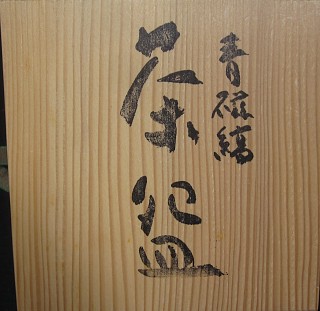 青磁縞
茶盌